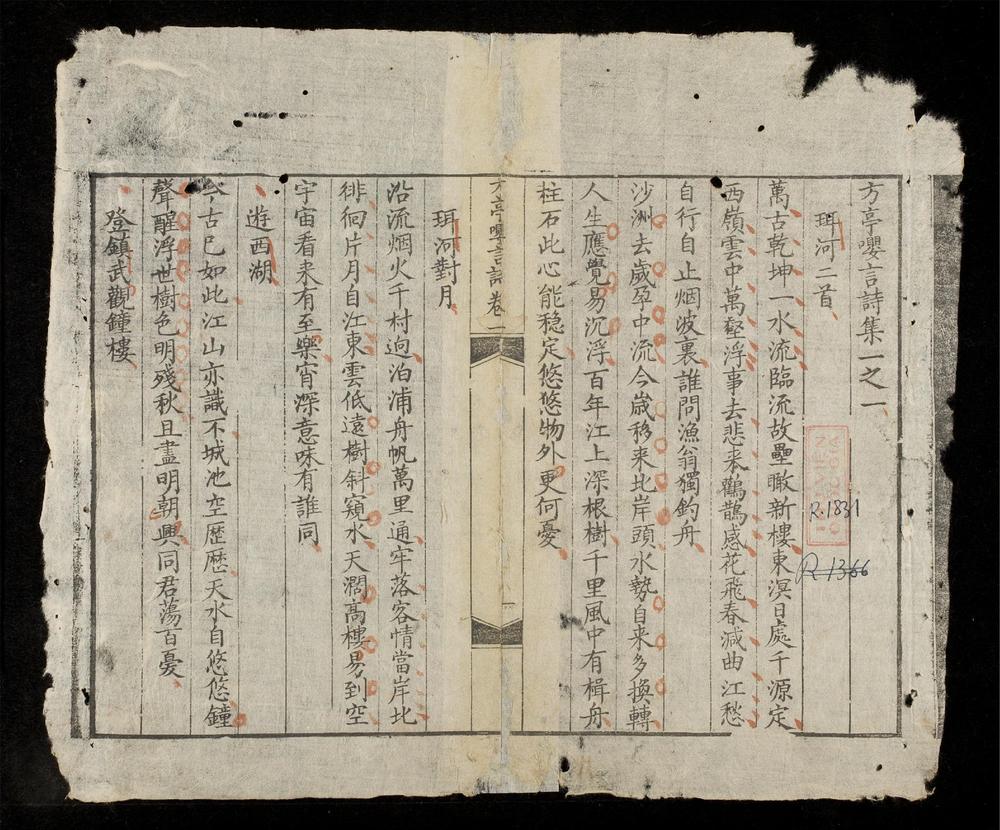 方亭嚶言詩集一之一
珥河二首
萬古乾坤一水流臨流故壘瞰新樓東溟日處千源定
西嶺雲中萬壑浮事去悲来鸛鵲感花飛春減曲江愁
自行自止烟波裏誰問漁翁獨釣舟
沙洲去歲孕中流今歳移来比岸頭水勢自来多換轉
人生應覺易沉浮百年江上深根樹千里風中有楫舟
柱石此心能稳定悠悠物外更何憂
方亭嚶言詩卷一
一
珥河對月
沿流烟火千村逈泊浦舟帆萬里通牢落客情當岸北
徘徊片月自江東雲低遠樹斜窺水天濶高樓易到空
宇宙看来有至樂宵深意味有誰同
遊西湖
今古已如此江山亦識不城池空歴歴天水自悠悠鐘
聲醒浮世樹色明殘秋且盡明朝興同君蕩百憂
登鎮武觀鐘樓
R.1831
R 1366